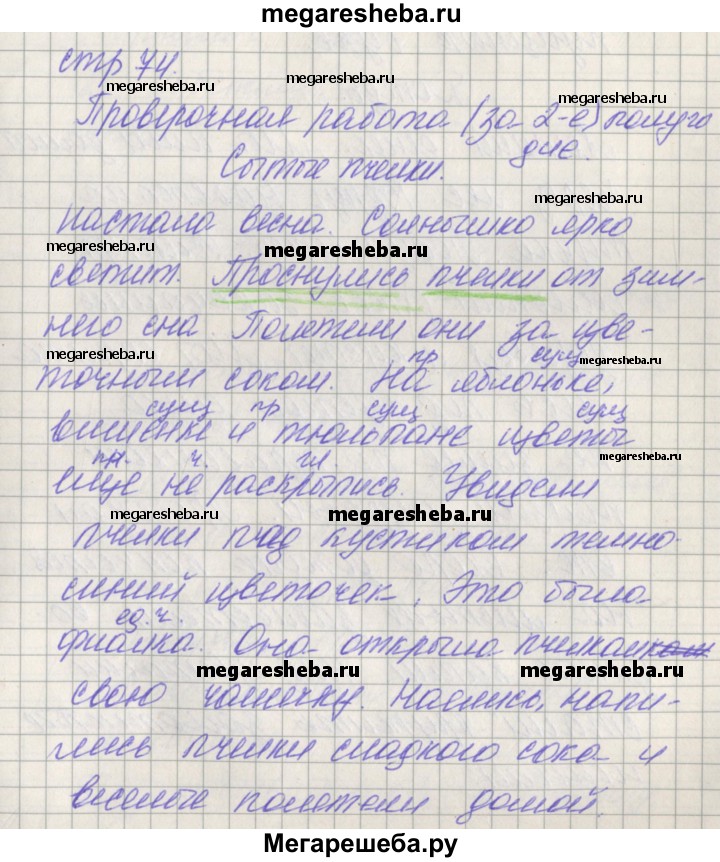 megaresheba.ru
стр 74.
megaresheba.ru
megaresheba.ru
megaresheba.ru
Проверочная работа (за 2-е) полуго
дие.
Сытые пчелки.
megaresheba.ru
Настала весна. Солнышко ярко
megaresheba.ru
megaresheba.ru
светит. Проснулись пчелки от зим-
него сна. Полетели они за цве-
megaresheba.ru
пр сущ
megaresheba.ru
точным соком. На яблоньке,
сущ пр сущ сущ
вишенке и тюльпане цветы
пр. ч. гл.
megaresheba.ru
еще не раскрылись. Увидели
megaresheba.ru
megaresheba.ru
пчелки под кустиком темно-
синий цветочек. Это была
ед. ч.
фиалка. Она открыла пчелкам
megaresheba.ru
megaresheba.ru
свою чашечку. Наелись, напи-
лись пчелки сладкого сока и
веселые полетели домой.
Мегарешеба.ру